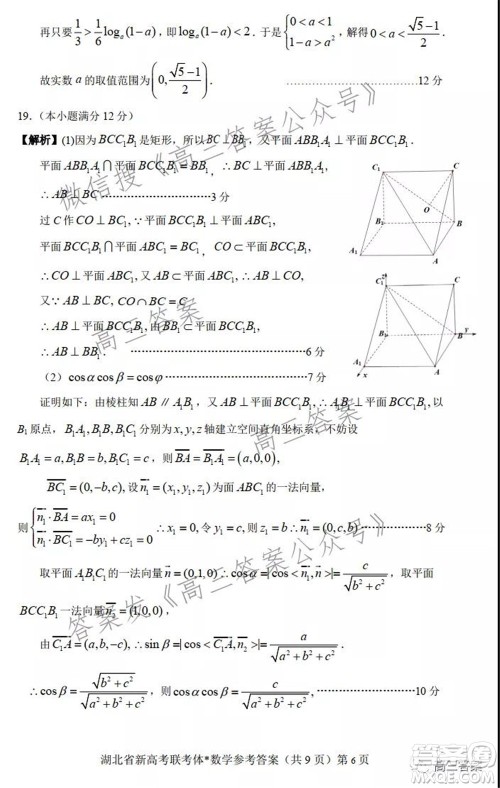 再只要 1/3 > 1/6 logₐ(1−a)，即 logₐ(1−a)<2．于是 {0<a<1, 1−a>a²，解得 0<a<(√5−1)/2．
故实数 a 的取值范围为(0, (√5−1)/2)．……12分
19.（本小题满分 12 分）
【解析】(1)因为 BCC₁B₁ 是矩形，所以 BC⊥BB₁，又平面 ABB₁A₁⊥平面 BCC₁B₁．
平面 ABB₁A₁∩平面 BCC₁B₁=BB₁，∴BC⊥平面 ABB₁A₁,
∴AB⊥BC ……3 分
过 C 作 CO⊥BC₁,∵平面 BCC₁B₁⊥平面 ABC₁,
平面 BCC₁B₁∩平面 ABC₁=BC₁，CO⊂平面 BCC₁B₁,
∴CO⊥平面 ABC₁,又 AB⊂平面 ABC₁,∴AB⊥CO.
又∵AB⊥BC，BC∩CO=C
∴AB⊥平面 BCC₁B₁,由 BB₁⊂平面 BCC₁B₁,
∴AB⊥BB₁. ……6 分
（2）cosαcosβ=cosφ……7 分
证明如下：由棱柱知 AB∥A₁B₁，又 AB⊥平面 BCC₁B₁,∴A₁B₁⊥平面 BCC₁B₁，以
B₁原点，B₁A₁,B₁B,B₁C₁分别为 x,y,z 轴建立空间直角坐标系，不妨设
B₁A₁=a,B₁B=b,B₁C₁=c，则 BA=B₁A₁=(a,0,0),
BC₁=(0,-b,c),设 n₁=(x₁,y₁,z₁)为面 ABC₁的一法向量，
则 {n₁·BA=ax₁=0, n₁·BC₁=−by₁+cz₁=0 ∴x₁=0,令 y₁=c,则 z₁=b ∴n₁=(0,c,b)……8 分
取平面 A₁B₁C₁的一法向量 n=(0,1,0)∴cosα=|cos<n₁,n>|=c/√(b²+c²)，取平面
BCC₁B₁一法向量 n₂=(1,0,0),
由 C₁A=(a,b,−c),∴sinβ=|cos<C₁A,n₂>|=a/√(a²+b²+c²)．
∴cosβ=√(b²+c²)/√(a²+b²+c²)，则 cosαcosβ=c/√(a²+b²+c²)，……10 分
湖北省新高考联考体*数学参考答案（共 9 页）第 6 页
C₁
C
O
B₁
B
A₁
A
z
C₁
C
B₁
B
y
A₁
A
x
微信搜《高三答案公众号》
高三答案
高三答案
答案发《高三答案公众号》
高三答案